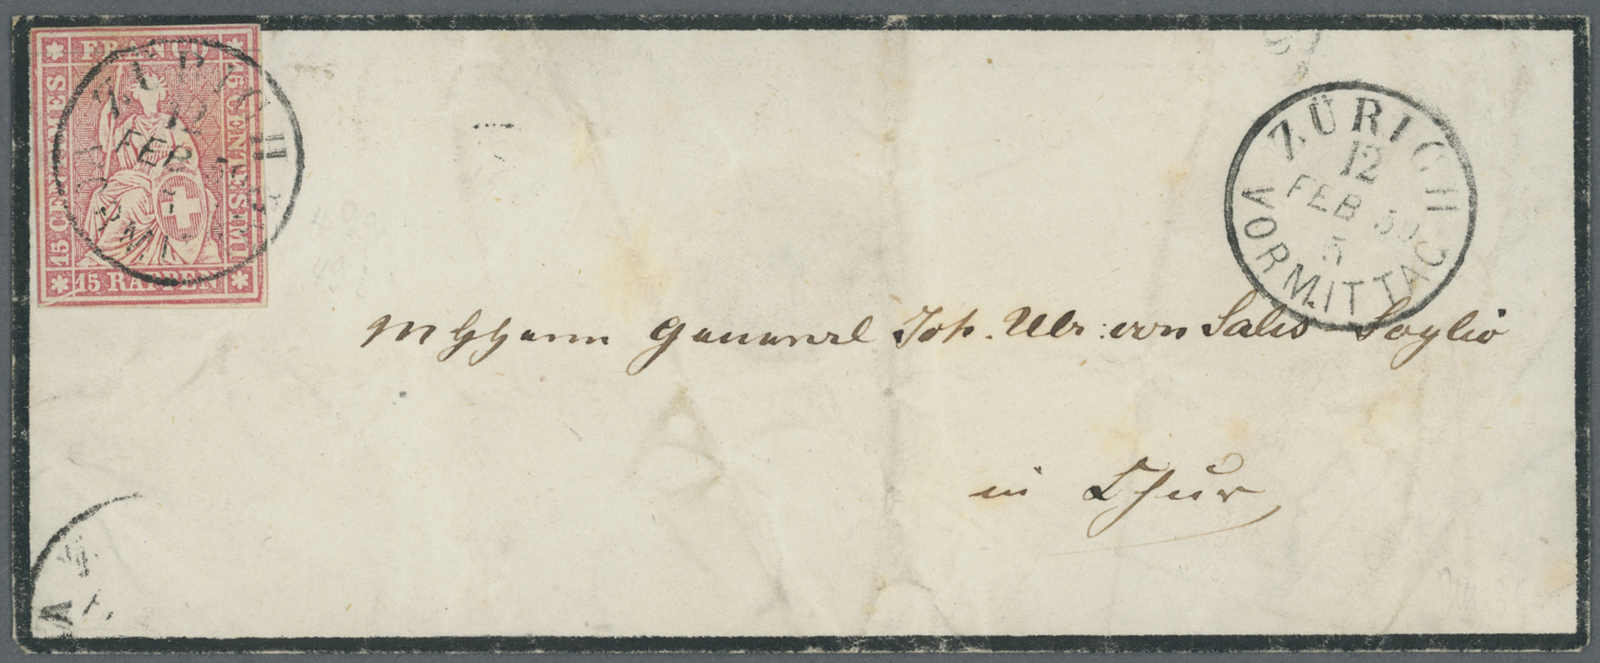 FRANCO
15 CENTIMES
15 CENTESIMI
15 RAPPEN
ZÜRICH
12
FEB
ZÜRICH
12
FEB 59
5
VORMITTAG
Joh. Ulr: von Salis Soglio
in Chur